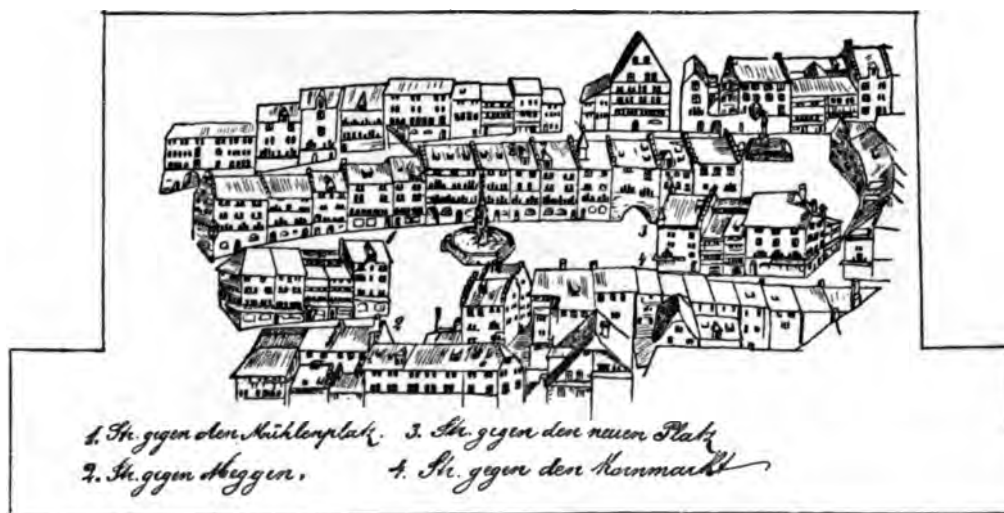 3
4
2
1. Str. gegen den Mühlenplatz. 3. Str. gegen den neuen Platz
2. Str. gegen Meggen. 4. Str. gegen den Kornmarkt